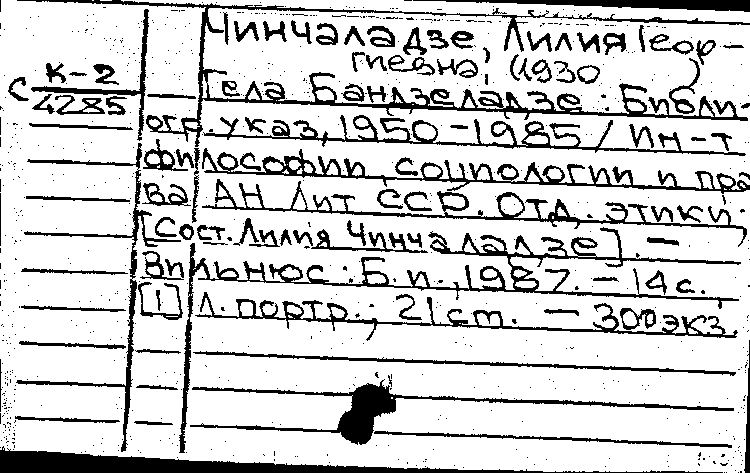 Чинчаладзе, Лилия Геор-
гиевна, (1930 )
С К-2
4285
Гела Бандзеладзе : Библи-
огр. указ, 1950-1985 / Ин-т
философии, социологии и пра
ва АН Лит ССР. Отд. этики;
[Сост. Лилия Чинчаладзе]. —
Вильнюс : Б. и., 1987. — 14 с.,
[1] л. портр.; 21 ст. — 300 экз.